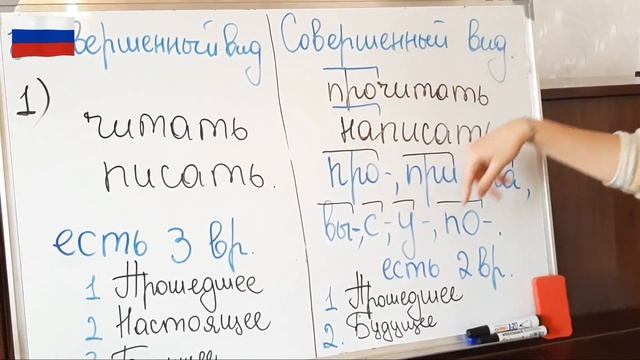 вершенный вид
1)
читать
писать.
есть 3 вр.
1 Прошедшее
2 Настоящее
3
Совершенный вид.
прочитать
написать
про-, при
вы-, с-, у-, по-.
есть 2 вр.
1 Прошедшее
2. Будущее